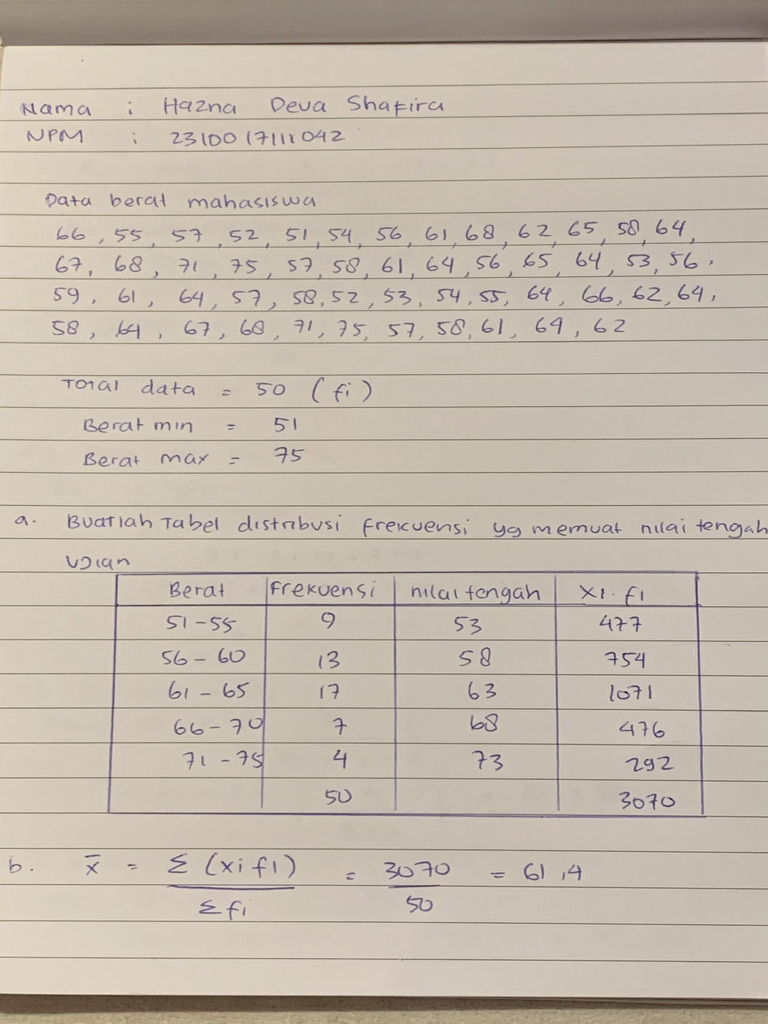 Nama : Hazna Deva Shafira
NPM : 2310017111042
Data berat mahasiswa
66, 55, 57, 52, 51, 54, 56, 61, 68, 62, 65, 58, 64,
67, 68, 71, 75, 57, 58, 61, 64, 56, 65, 64, 53, 56.
59, 61, 64, 57, 58, 52, 53, 54, 55, 64, 66, 62, 64,
58, 64, 67, 68, 71, 75, 57, 58, 61, 64, 62
Total data = 50 (fi)
Berat min = 51
Berat max = 75
a. Buatlah Tabel distribusi frekuensi yg memuat nilai tengah
ujian
Berat Frekuensi nilai tengah xi.fi
51-55 9 53 477
56-60 13 58 754
61-65 17 63 1071
66-70 7 68 476
71-75 4 73 292
50 3070
b. x̄ = Σ(xi fi) / Σfi = 3070 / 50 = 61,4